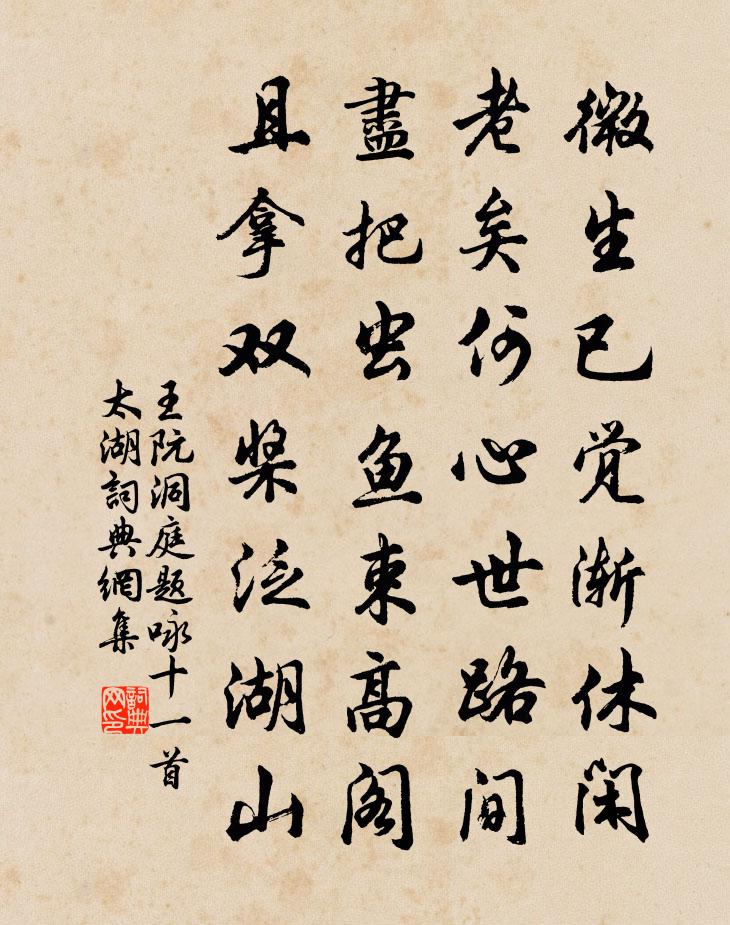 微生已觉渐休闲
老矣何心世路间
盡把虫鱼束高阁
且拿双桨泛湖山
王阮洞庭题咏十一首
太湖詞典網集
詞典网印